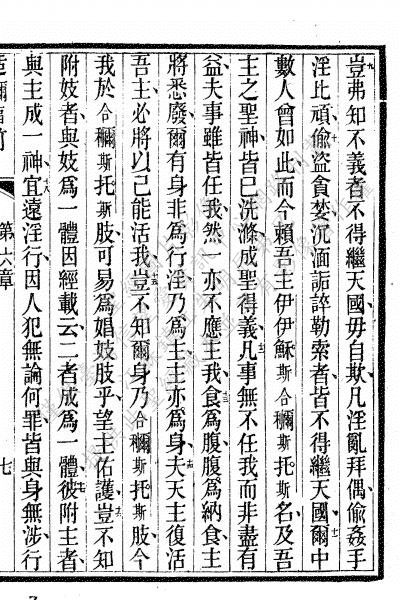 豈弗知不義者不得繼天國毋自欺凡淫亂拜偶偷姦手
淫比頑偷盜貪婪沉湎詬誶勒索者皆不得繼天國爾中
數人曾如此而今賴吾主伊伊穌斯合穪斯托斯名及吾
主之聖神皆已洗滌成聖得義凡事無不任我而非盡有
益夫事雖皆任我然一亦不應主我食爲腹腹爲納食主
將悉廢爾有身非爲行淫乃爲主主亦爲身夫天主復活
吾主必將以己能活我豈不知爾身乃合穪斯托斯肢今
我於合穪斯托斯肢可易爲娼妓肢乎望主佑護豈不知
附妓者與妓爲一體因經載云二者成爲一體彼附主者
與主成一神宜遠淫行因人犯無論何罪皆與身無涉行
第六章 七